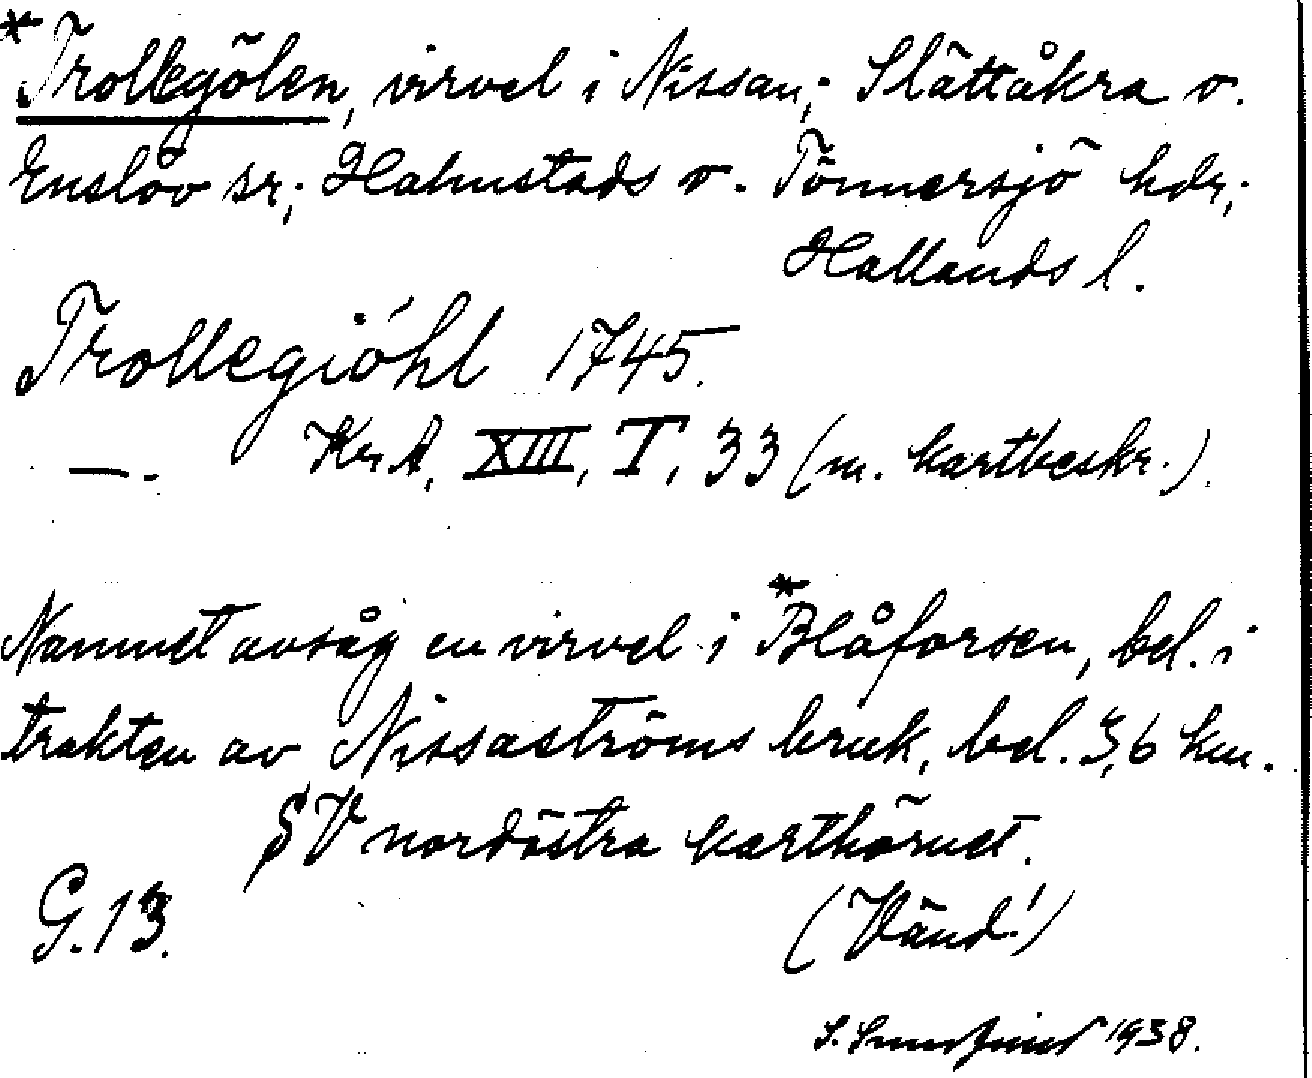 *Trollegölen, virvel i Nissan; Slättåkra o.
Enslöv sr; Halmstads o. Tönnersjö hdr;
Hallands l.
Trollegióhl 1745.
—. KrA, XIII, T, 33 (m. kartbeskr.).
Namnet avsåg en virvel i *Blåforsen, bel. i
trakten av Nissaströms bruk, bel. 3,6 km.
SV nordöstra karthörnet.
G. 13.
(Vänd!)
S. 1938.